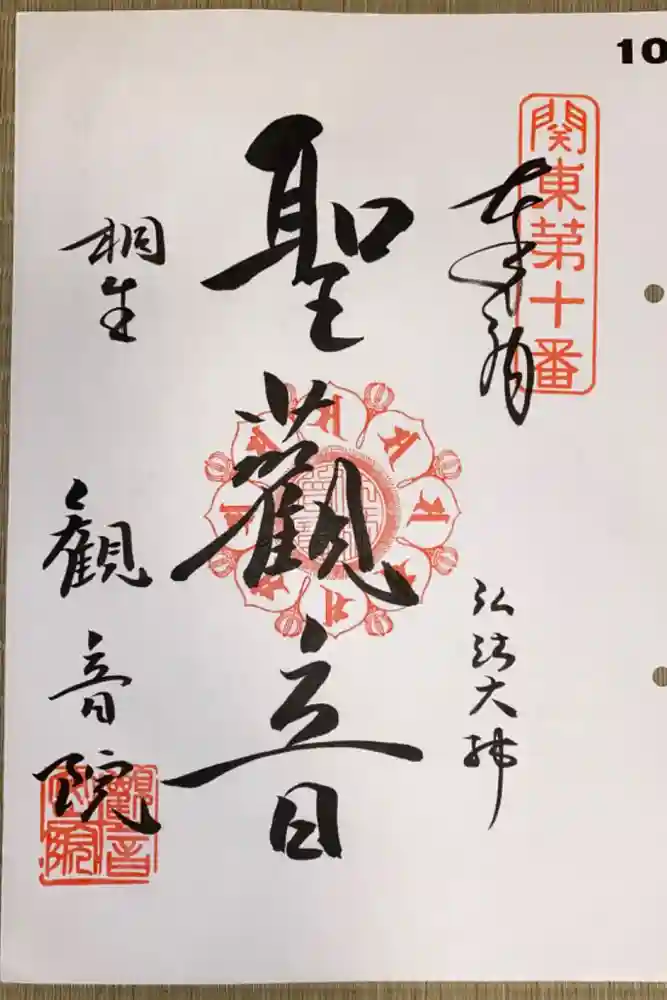 10
関東第十番
奉拝
弘法大師
聖觀音
桐生
観音院
觀音院